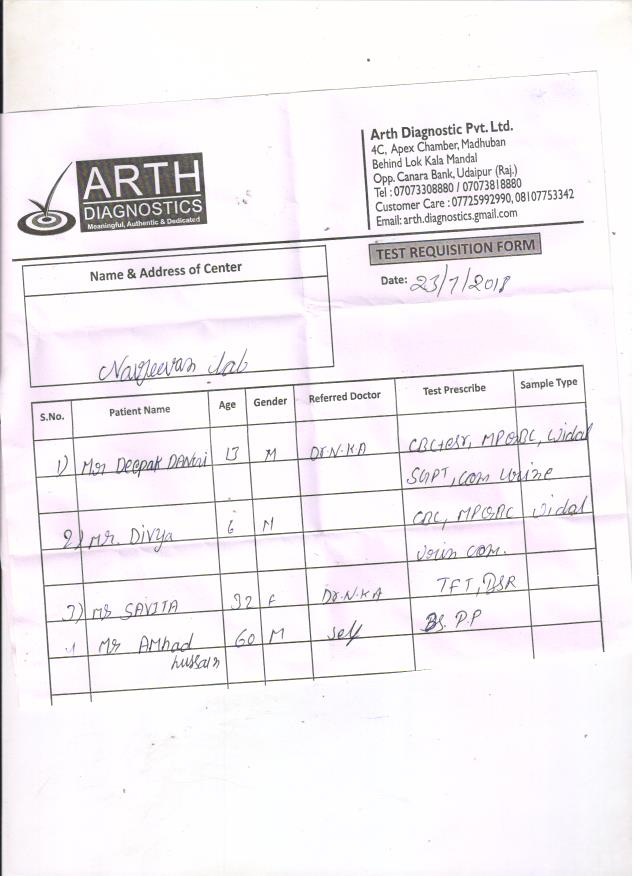 ARTH
DIAGNOSTICS
Meaningful, Authentic & Dedicated
Arth Diagnostic Pvt. Ltd.
4C, Apex Chamber, Madhuban
Behind Lok Kala Mandal
Opp. Canara Bank, Udaipur (Raj.)
Tel : 07073308880 / 07073818880
Customer Care : 07725992990, 08107753342
Email: arth.diagnostics.gmail.com
TEST REQUISITION FORM
Name & Address of Center
Date: 23/7/2018
Navjeevan Lab
S.No. Patient Name Age Gender Referred Doctor Test Prescribe Sample Type
1) Mr Deepak 13 M Dr.N.KA CBC+esr, MPQBC, Widal
SGPT, com Urine
2) mr. Divya 6 M CBC, MPQBC Widal
Urin com.
3) ms SAVITA 32 F Dr.N.KA TFT,
Mr Amhad 60 M self BS. P.P
hussain